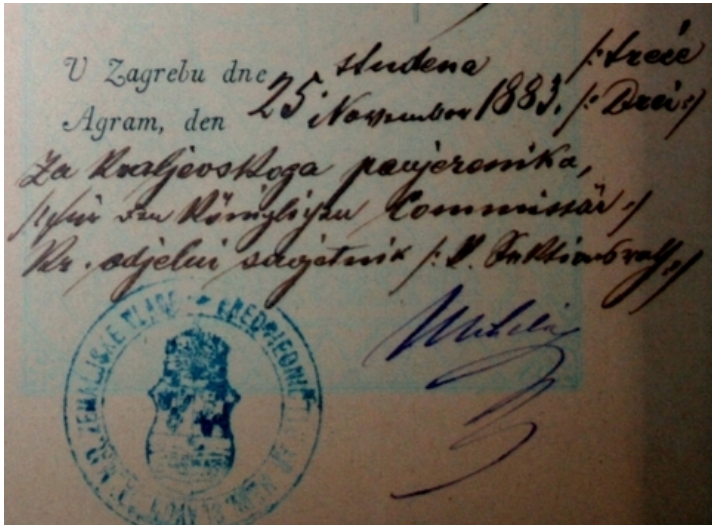 U Zagrebu dne studena /: treće
Agram, den 25. November 1883. /: Drei :/
Za Kraljevskoga povjerenika,
/: für den Königlichen Commissär :/
Kr. odjelni savjetnik /: K. Sektionsrath :/
ZEMALJSKE VLADE